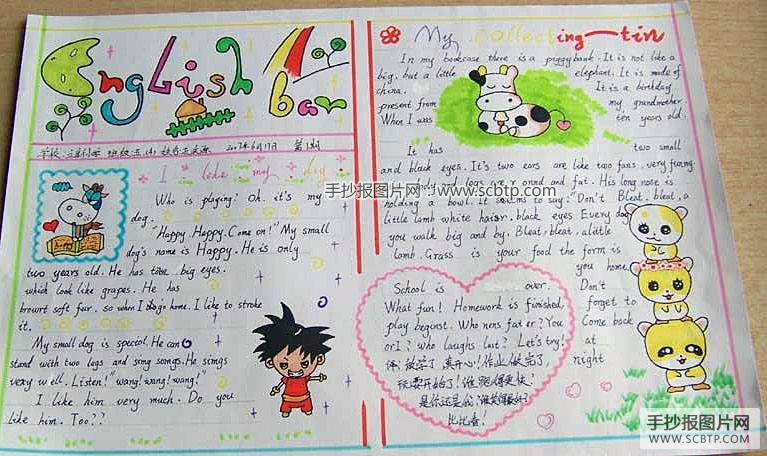 English bar
2012年6月17日 第1期
I like my dog
Who is playing? Oh. it's my
dog.
"Happy. Happy. Come on!" My small
dog's name is Happy. He is only
two years old. He has two big eyes.
which look like grapes. He has
brount soft fur. so when I go home. I like to stroke
it.
My small dog is special. He can
stand with two legs and sing songs. He sings
very well. Listen! "wang! wang! wang!"
I like him very much. Do you
like him. Too??
My collecting-tin
In my bookcase there is a piggybank. It is not like a
big. but a little elephant. It is made of
china. It is a birthday
present from my grandmother.
When I was ten years old.
It has two small
and black eyes. It's two ears are like two fans. very funny.
and legs and fat. His long nose is
holding a bowl. It seems to say: "Don't Bleat. bleat. a
little lamb white hair. black eyes Every day
you walk big and by. Bleat. bleat. alittle
lamb. Grass is your food the form is
you home.
Don't
forget to
Come back
at
night
School is over.
What fun! Homework is finished,
play begunst. Who runs faster? You
or I? who laughs last? Let's try!
放学了 真开心! 作业做完了,
玩耍开始了! 谁跑得更快?
是你还是我? 谁笑得最好?
比比看!
手抄报图片网 www.scbtp.com
手抄报图片网
WWW.SCBTP.COM